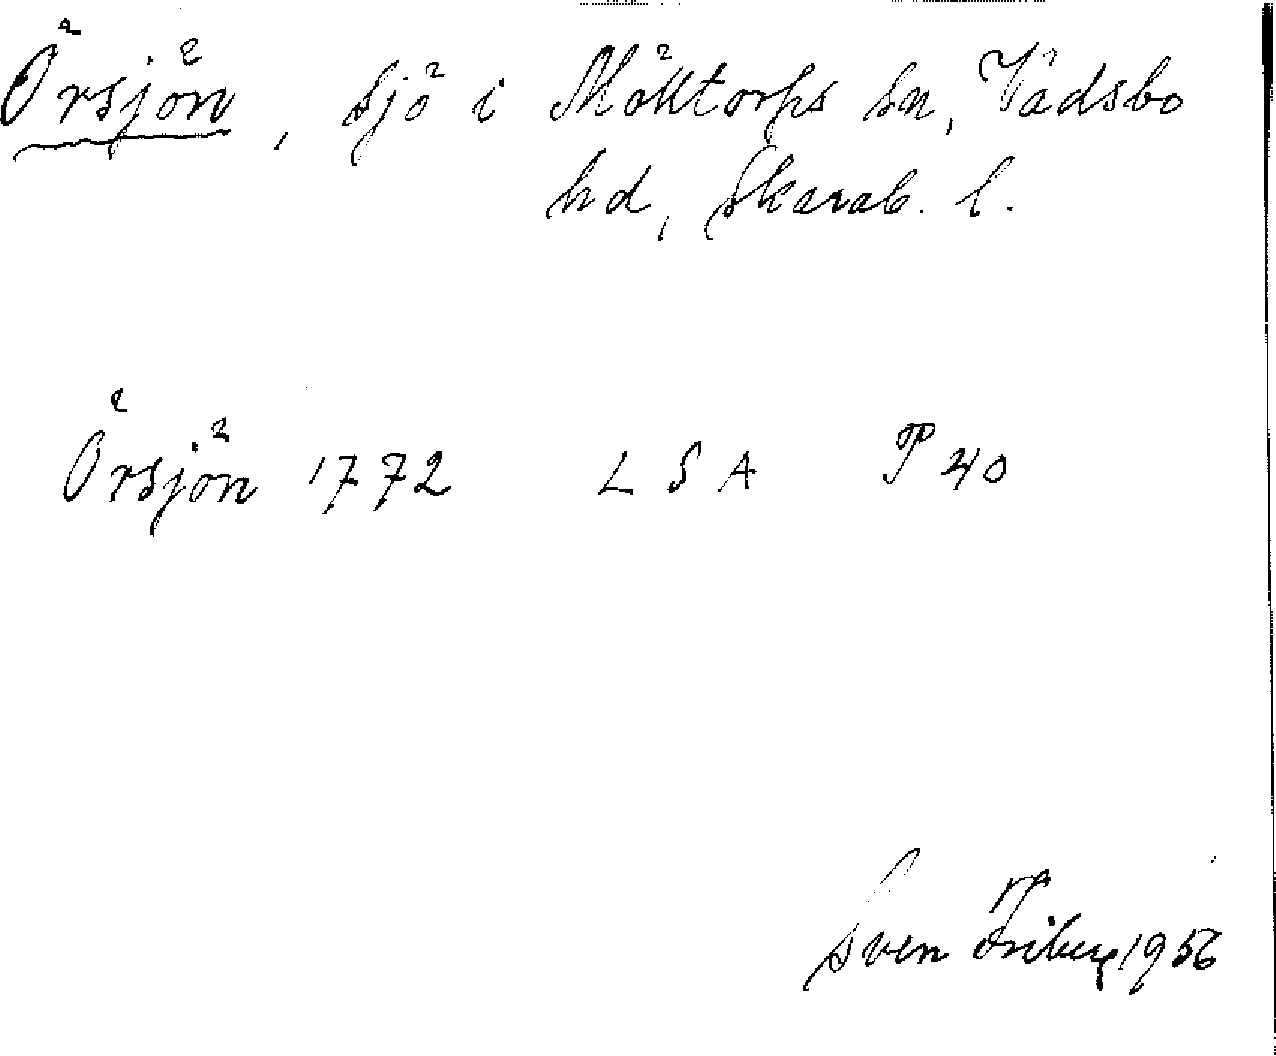 Örsjön, sjö i Mölltorps sn, Vadsbo
hd, Skarab. l.
Örsjön 1772 LSA P 40
Sven Friberg 1956